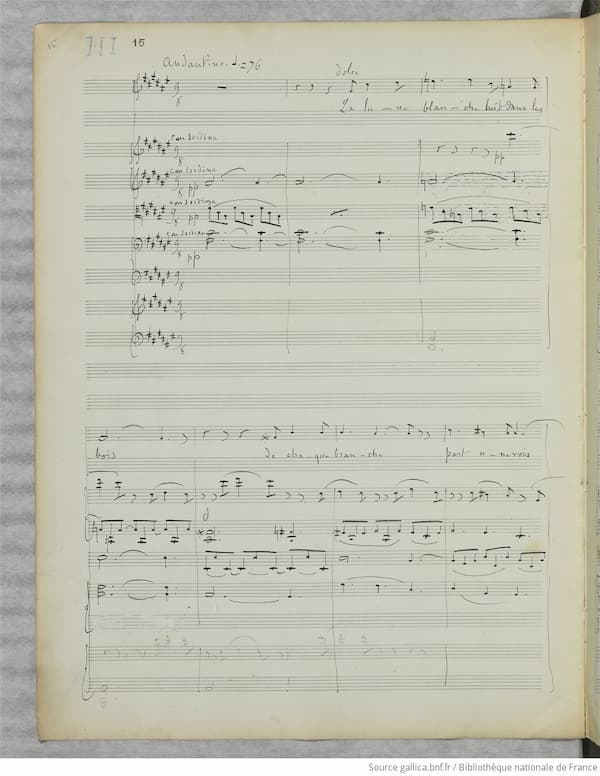 15 III 15
Andantino ♩.= 76
dolce
La lu - ne blan - che luit dans les
con sordina
con sordina
pp
pp
con sordina
pp
con sordina
pp
bois
de cha - que bran - che
part u - ne voix
Source gallica.bnf.fr / Bibliothèque nationale de France